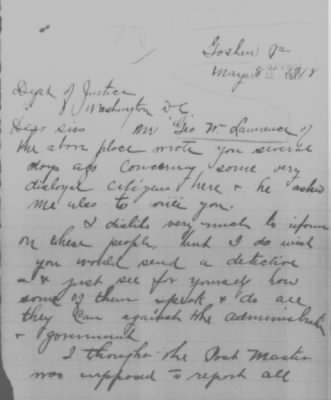 Goshen Va
May 8th 1918
Dept of Justice
Washington D.C
Dear Sirs Mr Geo W. Lawrence of
the above place wrote you several
days ago concerning some very
disloyal citizens here & he asked
me also to write you.
I dislike very much to inform
on these people, but I do wish
you would send a detective
& just see for yourself how
some of them speak & do all
they can against the administration
& government
I thought the Post Master
was supposed to report all